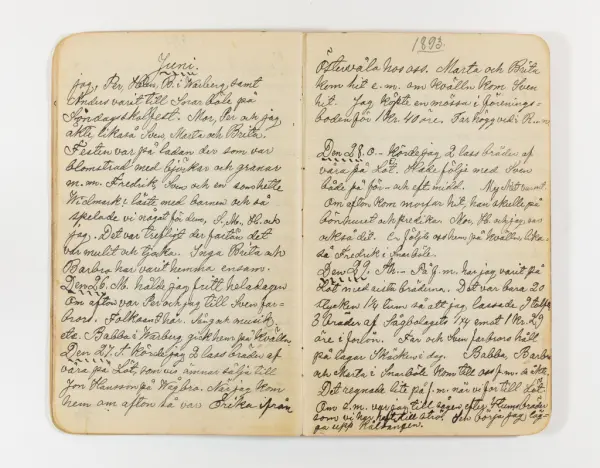 Juni.
jag, Per, B. i Warberg, samt
Anders varit till Snarböle på
Söndagsskolfest. Mor, Per och jag,
åkte likaså Sven, Marta och Brita.
Festen var på ladan der som var
blomstrad med björkar och granar
m.m. Fredrik, Sven och en som hette
Widmark; läste med barnen och så
spelade vi något för dem, S. M. och
jag. Det var trefligt der fastän det
var mulit och tjocka. Inga Brita och
Barbro har varit hemma ensam.
Den 26. M. hålde jag fritt hela dagen
Om afton var Per och jag till Sven far-
brors. Folksamt här. musik
etc. Babba i Warberg gick hem på kvällen.
Den 27. T. Körde jag 2 lass bräder af
vara på Löt, som vi ämnar sälja till
Jon Hansson på Wägbro. När jag kom
hem om afton så var Erika ifrån
1893.
Östervåla hos oss. Marta och Brita
kom hit e.m. om kvälln kom Sven
hit. Jag köpte en mössa i förenings-
boden för 1 kr. 40 öre. Far högg ved i
Den 28. O. Körde jag 2 lass bräder af
vara på Löt. Hade följe med Sven
både på för- och eft. midd. Mycket varmt.
Om afton kom morfar hit, han skulle på
bönhuset och predika. Mor, och jag, var
också dit. E. följde oss hem på kvälln lika-
så Fredrik i Snarböle.
Den 29. Th. På f.m. har jag varit på
Löt med sista bräderna. Det var bara 20
stycken 1/4 tum så att jag lassade
3 bräder af Sågbolagets 1/4 emot 1 Kr. 25
öre i forlön. Far och Sven farbrors höllt
på lagar i dag. Babba, Barbro
och Marta i Snarböle kom till oss f.m.
Det regnade lite på f.m. när vi for till Löt.
Om e.m. var jag till sågen efter bräder
som vi har haft till ströv. Sen börja jag läg-
ga upp Kålsängen.